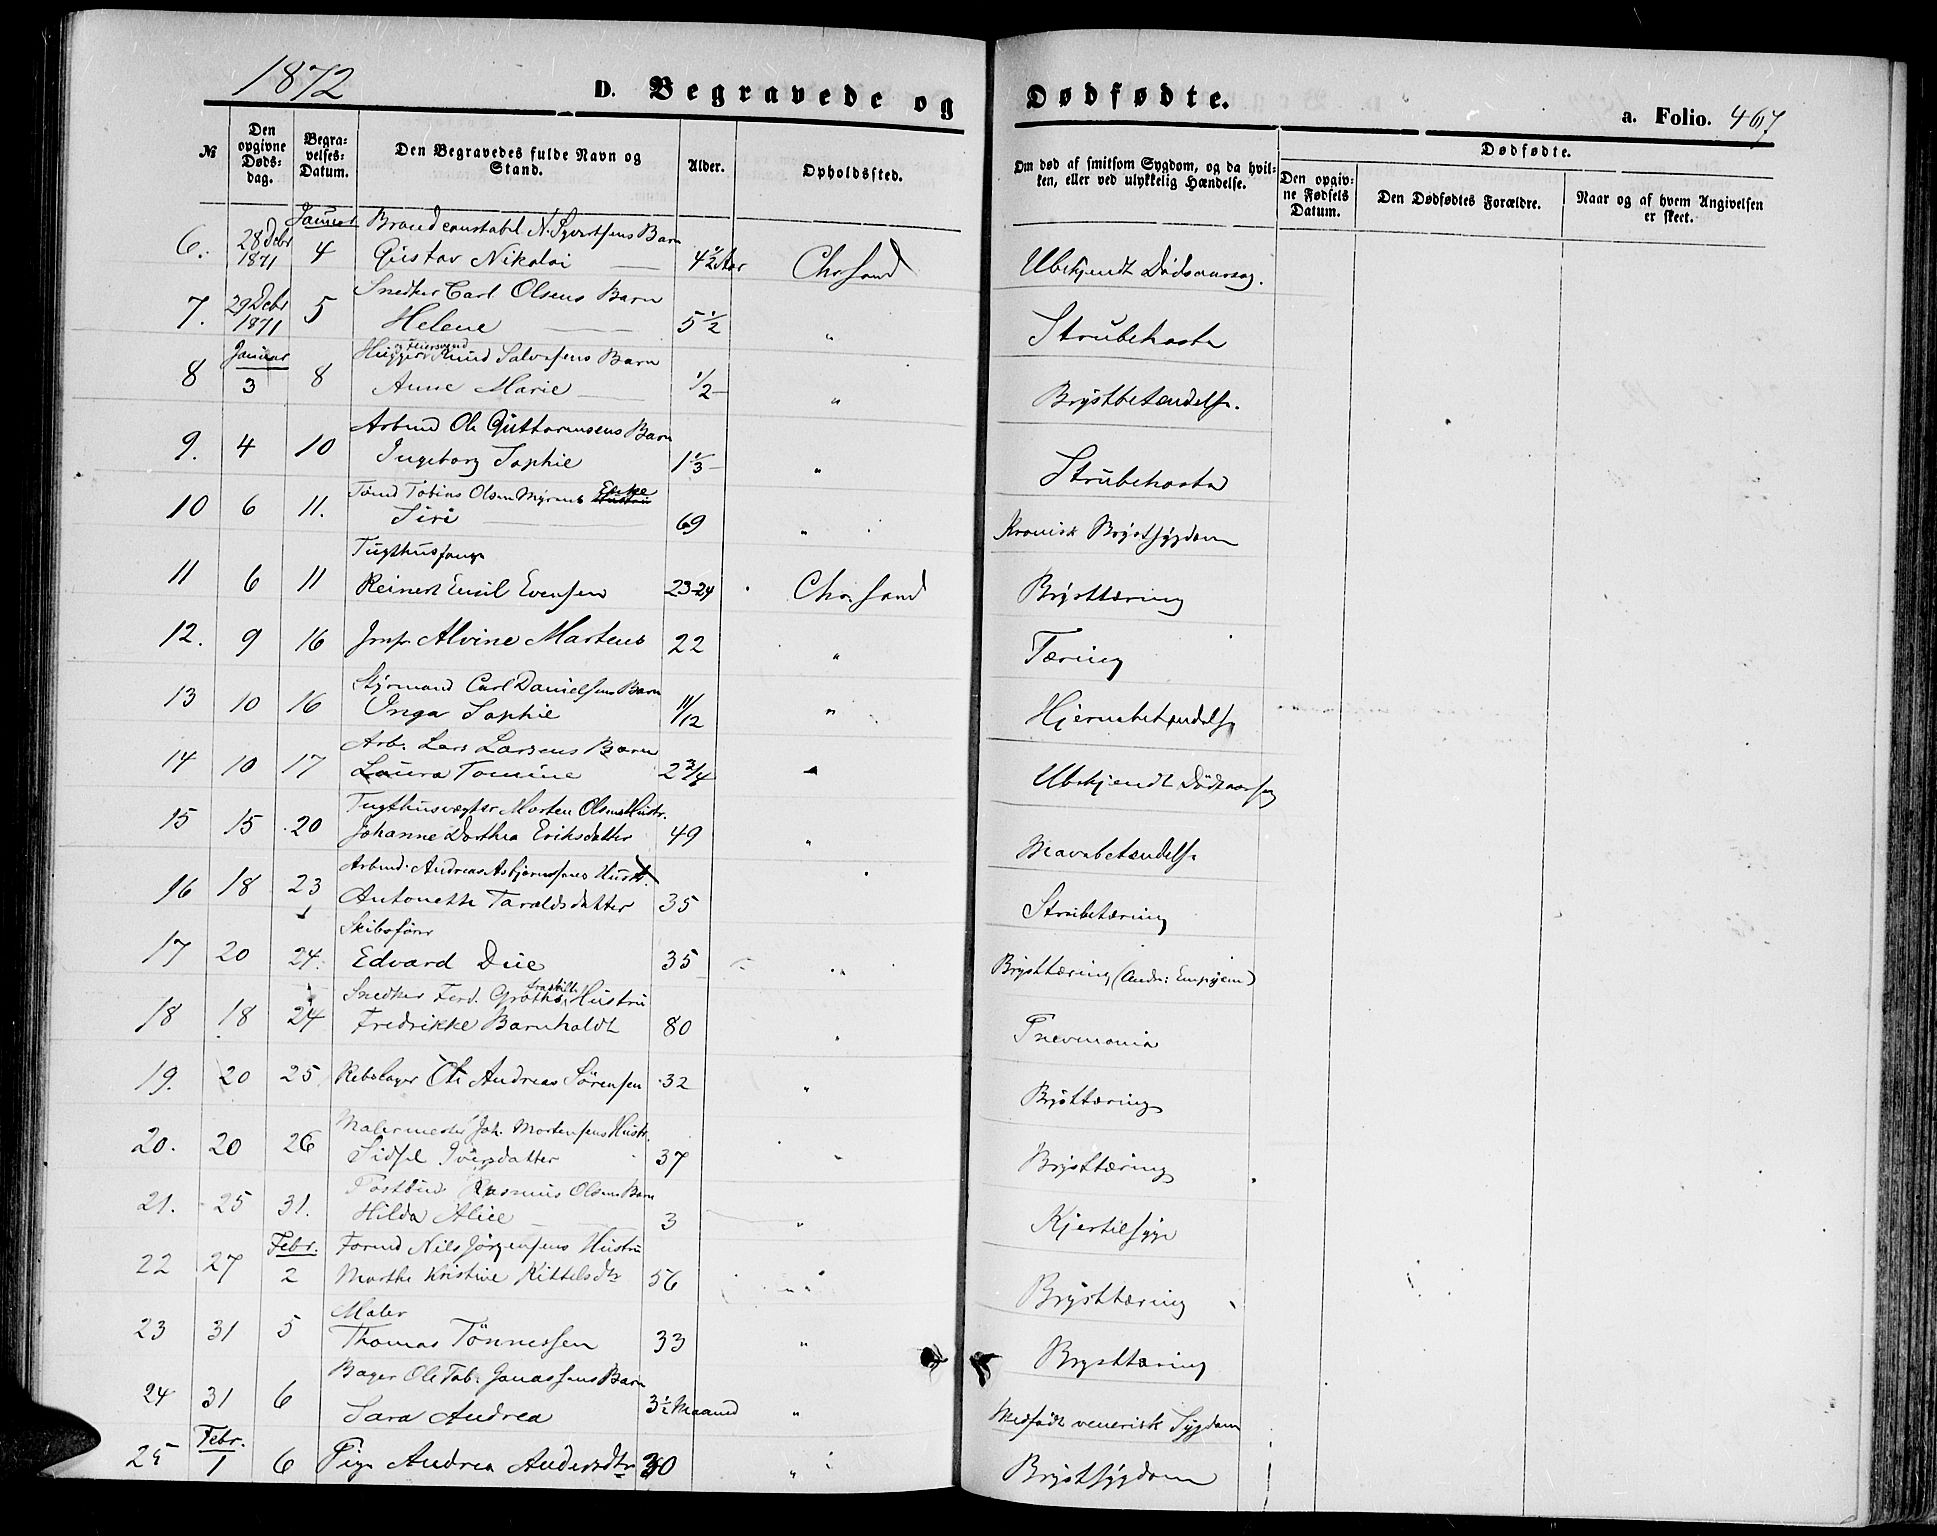 1872
D. Begravede og
Dødfødte.
a. Folio. 467
№
Den opgivne Døds-dag.
Begra-velses-Datum.
Den Begravedes fulde Navn og Stand.
Alder.
Opholdssted.
Om død af smitsom Sygdom, og da hvil-ken, eller ved ulykkelig Hændelse.
Dødfødte.
Den opgiv-ne Fødsels Datum.
Den Dødfødtes Forældre.
Naar og af hvem Angivelsen er skeet.
Januar Brandconstabel N. Syvertsens Barn
6. 28 Debr 1871 4 Gustav Nikolai 4½ Aar Chr.sand Ubekjendt Dødsaarsag.
Snedker Carl Olsens Barn
7. 29 Debr 1871 5 Helene 5½ " Strubehoste
Januar Hugger Knud Salvesens Barn
8 3 8 Anne Marie ½ " Brystbetændelse.
Arbmd Ole Guttormsens Barn
9. 4 10 Ingeborg Sophie 1⅓ " Strubehoste
Tobias Olsen Myrens Enke
10 6 11. Siri 69 " Kronisk Brystsygdom
Tugthusfange
11 6 11 Reinert Emil Evensen 23-24 Chr.sand Brysttæring
12. 9 16 Jmfr. Alvine Martens 22 " Tæring
Styrmand Carl Danielsens Barn
13 10 16 Inga Sophie 11/12 " Hjernebetændelse
Arb. Lars Larsens Barn
14 10 17 Laura Tomine 2¾ " Ubekjendt Dødsaarsag
Tugthusvægter Morten Olsens Hustr.
15 15 20 Johanne Dorthea Eriksdatter 49 " Mavebetændelse
Arbmd. Andreas Asbjørnsens Hustr.
16 18 23 Antonette Taraldsdatter 35 Strubetæring
Skibsfører
17 20 24. Edvard Due 35 " Brysttæring (Andr: Empyem)
Snedker Ferd. Groths fraskilte Hustru
18 18 24 Fredrikke Barnholdt 80 " Pnevmonia
19. 20 25 Rebslager Ole Andreas Sörensen 32 " Brysttæring
Malermester Joh. Mortensens Hustr.
20. 20 26 Sidsel Iversdatter 37 " Brysttæring
Postbud Rasmus Olsens Barn
21. 25 31. Hilda Alice 3 " Kjertelsyge
Febr. Nils Jörgensens Hustru
22 27 2 Marthe Kristine Kittelsdtr 56 " Brysttæring
Maler
23 31 5 Thomas Tönnessen 33 " Brysttæring
Bager Ole Tob. Jonassens Barn
24 31 6 Sara Andrea 3½ Maaned " Medfødt venerisk Sygdom
Febr.
25 1 6 Pige Andrea Andersdtr 30 " Brystsygdom